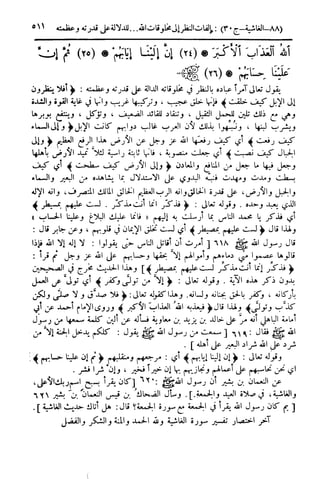 (٨٨-الغاشية- ج٣٠) : إلفات النظر إلى مخلوقات الله... للدلالة على قدرته وعظمته ٥١١
اللَّهُ الْعَذَابَ الْأَكْبَرَ * (٢٤) إِنَّ إِلَيْنَا إِيَابَهُمْ * (٢٥) ثُمَّ إِنَّ
عَلَيْنَا حِسَابَهُمْ * (٢٦)
يقول تعالى آمراً عباده بالنظر في مخلوقاته الدالة على قدرته وعظمته : ﴿ أفلا ينظرون
إلى الإبل كيف خلقت ﴾ فإنها خلق عجيب ، وتركيبها غريب وانها في غاية القوة والشدة
وهي مع ذلك تلين للحمل الثقيل ، وتنقاد للقائد الضعيف ، وتؤكل ، وينتفع بوبرها
ويشرب لبنها ، ونبهوا بذلك لأن العرب غالب دوابهم كانت الإبل ﴿ وإلى السماء
كيف رفعت ﴾ أي كيف رفعها الله عز وجل عن الأرض هذا الرفع العظيم ﴿ وإلى
الجبال كيف نصبت ﴾ أي جعلت منصوبة ، فإنها ثابتة راسية لئلا تميد الأرض بأهلها
وجعل فيها ما جعل من المنافع والمعادن ﴿ وإلى الأرض كيف سطحت ﴾ أي كيف
بسطت ومدت ومهدت فنبه البدوي على الاستدلال بما يشاهده من البعير والسماء
والجبل والأرض، على قدرة الخالق وانه الرب العظيم الخالق المالك المتصرف، وانه الإله
الذي يعبد وحده . وقوله تعالى : ﴿ فذكر إنما أنت مذكر . لست عليهم بمسيطر ﴾
أي فذكر يا محمد الناس بما أرسلت به إليهم « فإنما عليك البلاغ وعلينا الحساب »
ولهذا قال ﴿ لست عليهم بمسيطر ﴾ أي لست تخلق الإيمان في قلوبهم ، وعن جابر قال :
قال رسول الله ﷺ ٦١٨ [ أمرت أن أقاتل الناس حتى يقولوا : لا إله إلا الله فإذا
قالوها عصموا مني دماءهم وأموالهم إلا بحقها وحسابهم على الله عز وجل ثم قرأ :
﴿ فذكر إنما أنت مذكر لست عليهم بمصيطر ﴾ ] وهذا الحديث مخرج في الصحيحين
بدون ذكر هذه الآية . وقوله تعالى : ﴿ إلا من تولى وكفر ﴾ أي تولى عن العمل
بأركانه ، وكفر بالحق بجنانه ولسانه. وهذا كقوله تعالى: ﴿ فلا صدق و لا صلى ولكن
كذب وتولى ﴾ ولهذا قال ﴿ فيعذبه الله العذاب الأكبر ﴾ وروى الإمام أحمد عن أبي
أمامة الباهلي أنه مر على خالد بن يزيد بن معاوية فسأله عن ألين كلمة سمعها من رسول
الله ﷺ فقال : ٦١٩ [ سمعت من رسول الله ﷺ يقول : كلكم يدخل الجنة إلا من
شرد على الله شراد البعير على أهله ] .
وقوله تعالى : ﴿ إن إلينا إيابهم ﴾ أي : مرجعهم ومنقلبهم ﴿ ثم إن علينا حسابهم ﴾
أي نحن نحاسبهم على أعمالهم ونجازيهم بها إن خيراً فخير ، وإن شرا فشر .
عن النعمان بن بشير أن رسول الله ﷺ ٦٢٠ [ كان يقرأ بسبح اسم ربك الأعلى ،
والغاشية، في صلاة العيد والجمعة] . وسأل الضحاك بن قيس النعمان بن بشير ٦٢١
[ بم كان رسول الله يقرأ في الجمعة مع سورة الجمعة؟ قال: هل أتاك حديث الغاشية ] .
آخر اختصار تفسير سورة الغاشية ولله الحمد والمنة والشكر والفضل